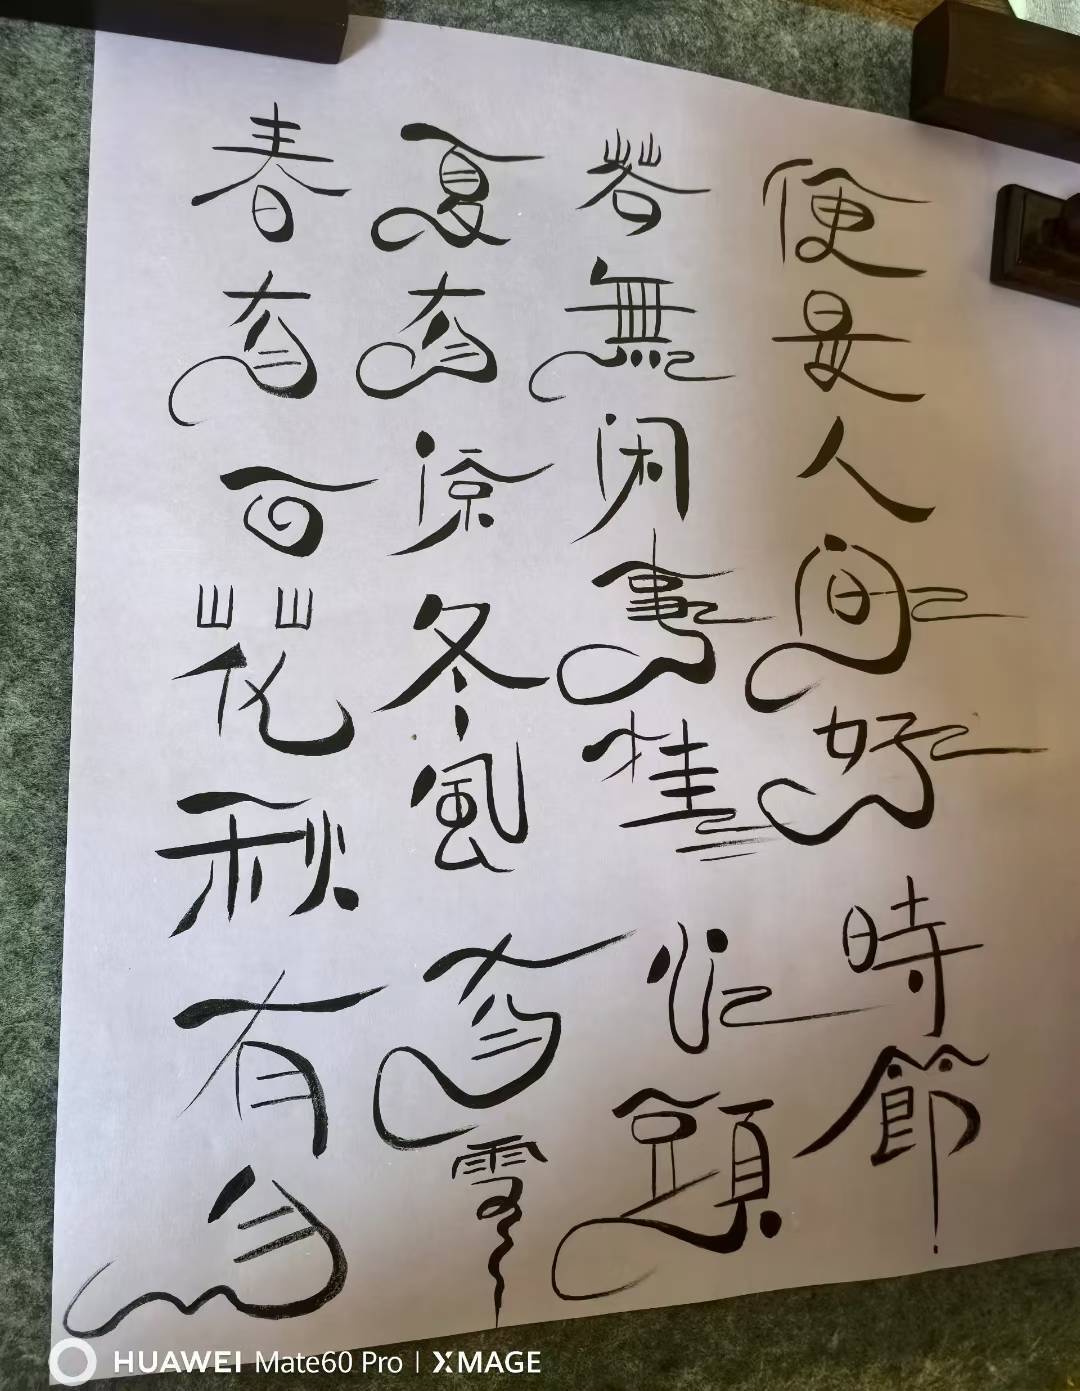 春有百花秋有月
夏有凉冬風有雪
若無闲事挂心頭
便是人间好時節
HUAWEI Mate60 Pro | XMAGE